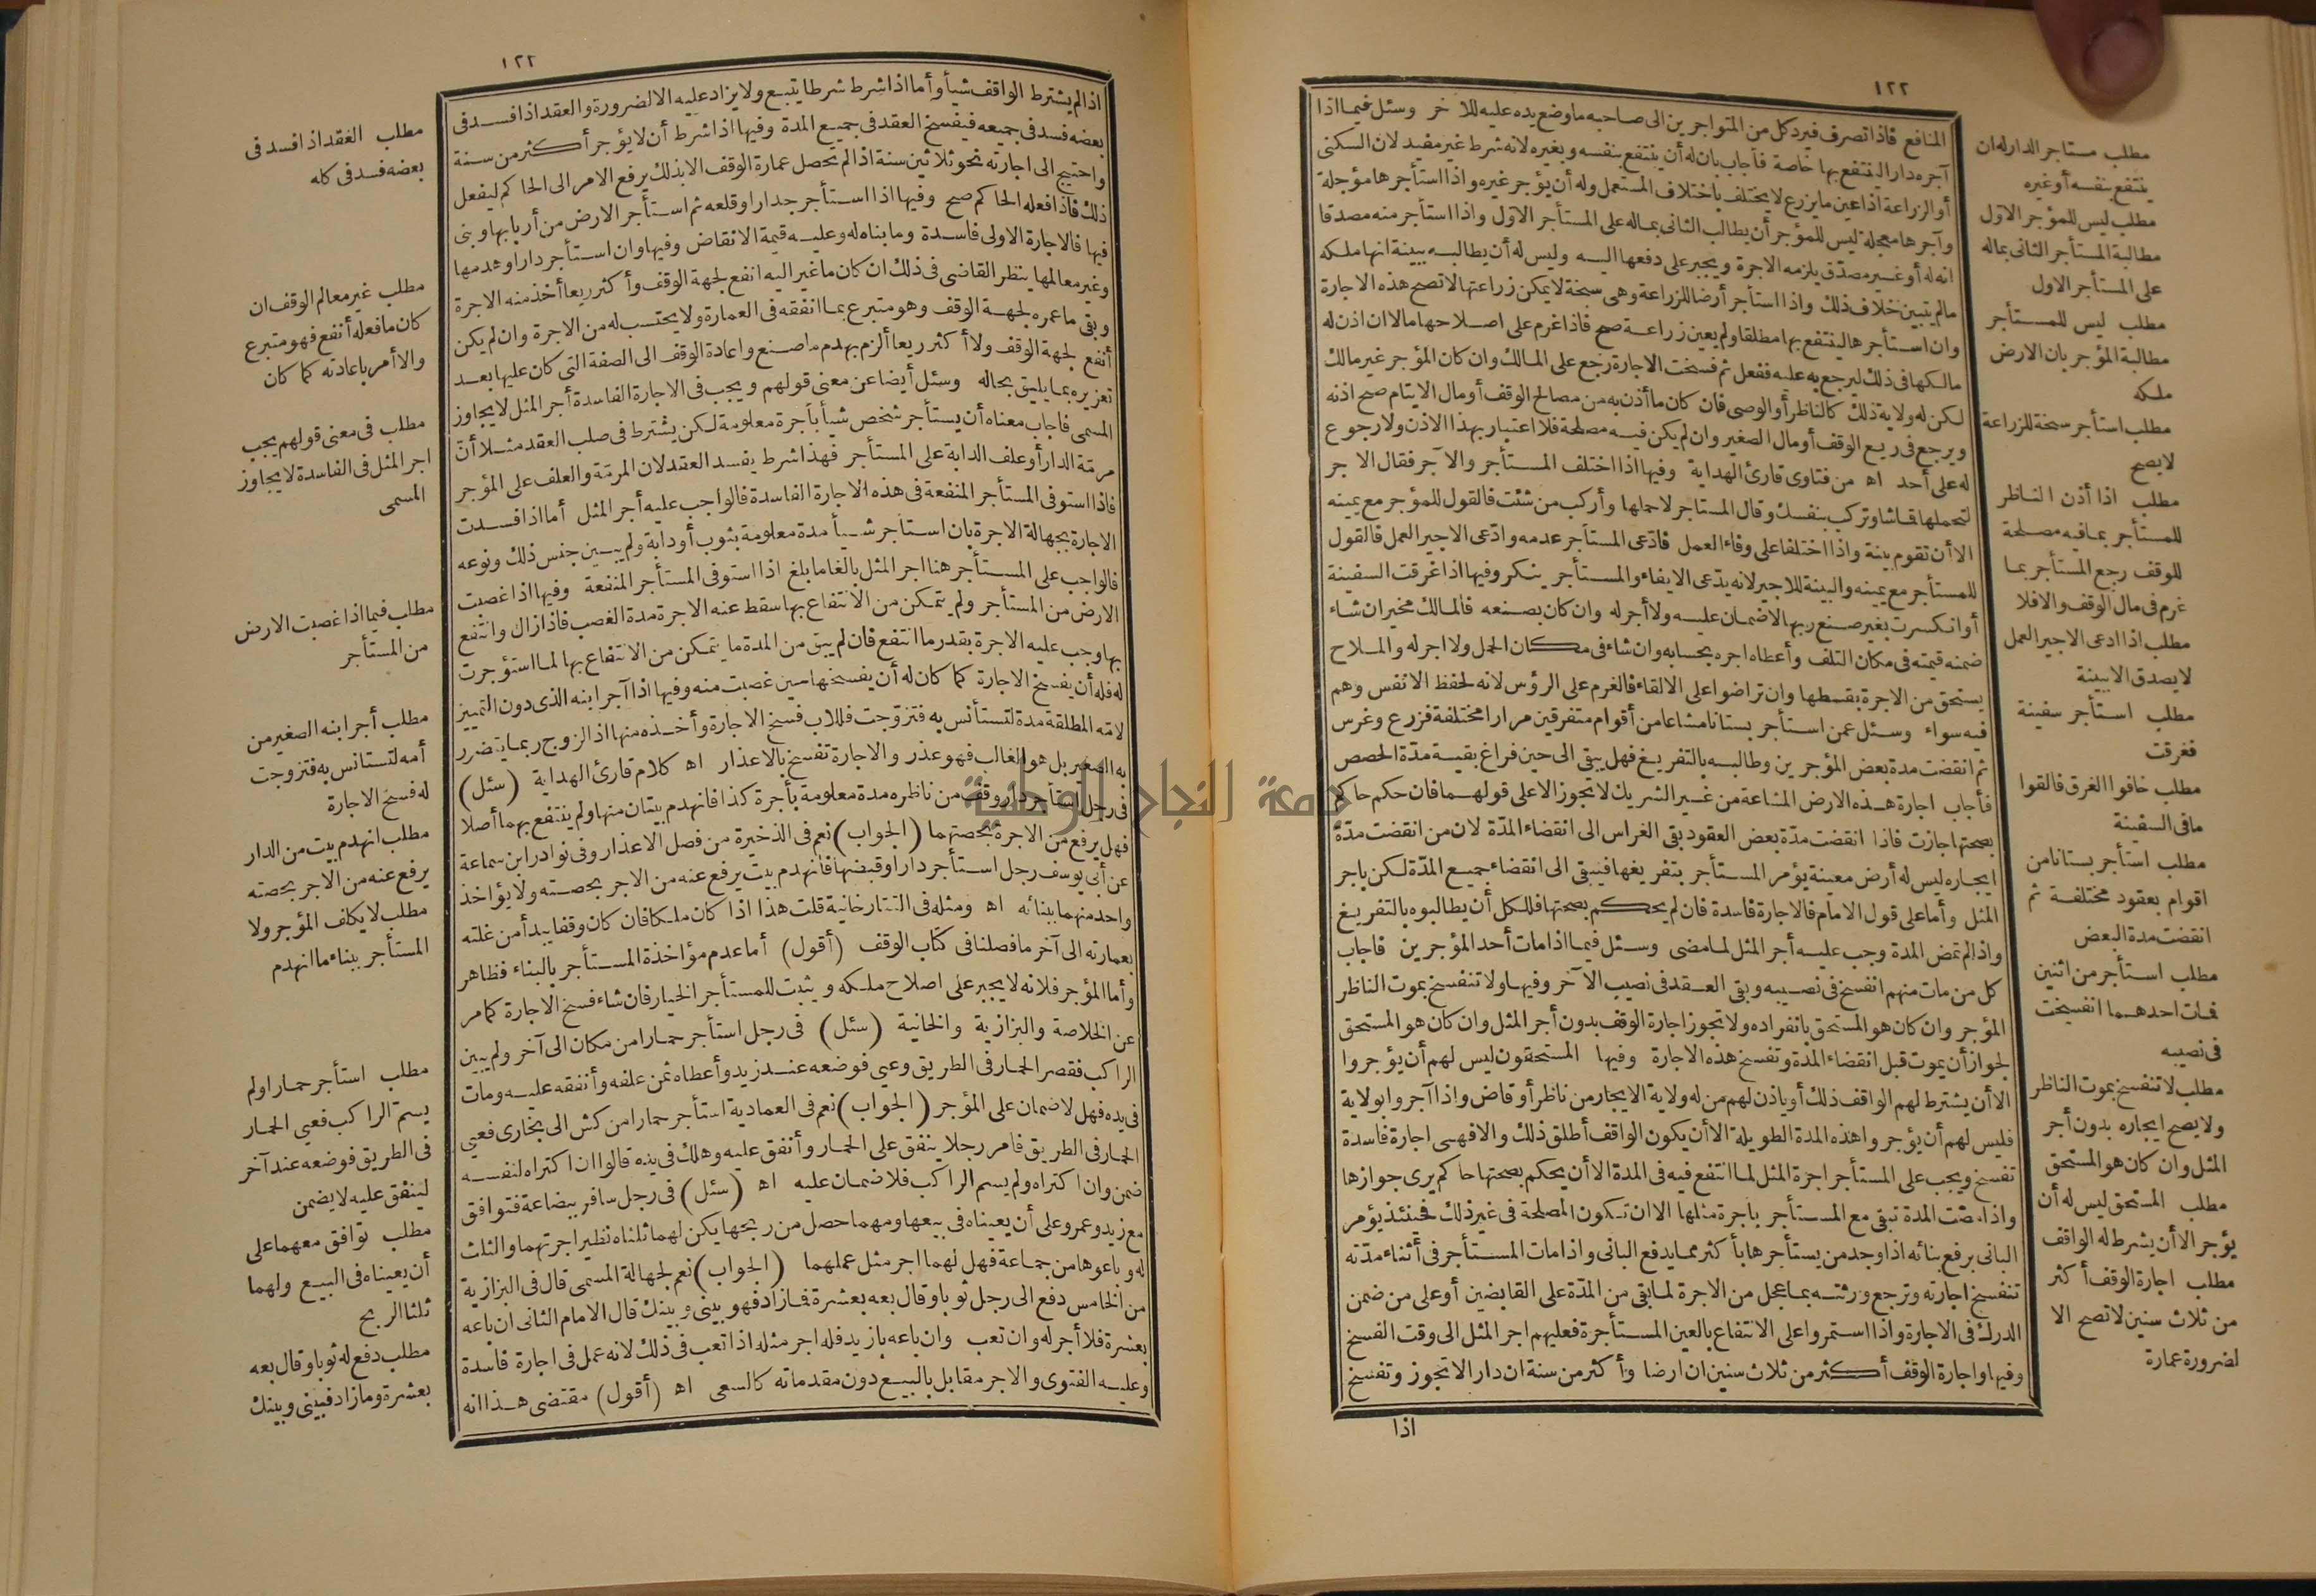 ١٢٢
المنافع فاذا تصرف فيرد كل من المتواجرين الى صاحبه ما وضع يده عليه للآخر وسئل فيما اذا
آجره دار الينتفع بها خاصة فأجاب بان له أن ينتفع بنفسه وبغيره لانه شرط غير مقيد لان السكنى
أو الزراعة اذا عين ما يزرع لا يختلف باختلاف المستعمل وله أن يؤجر غيره واذا استأجرها مؤجلة
وآجرها معجلة ليس للمؤجر أن يطالب الثانى بماله على المستأجر الاول واذا استأجر منه مصدقا
انه له أو غير مصدق يلزمه الاجرة ويجبر على دفعها اليه وليس له أن يطالبه ببينة انها ملكه
مالم يتبين خلاف ذلك واذا استأجر أرضا للزراعة وهى سبخة لا يمكن زراعتها لا تصح هذه الاجارة
وان استأجرها لينتفع بها مطلقا ولم يعين زراعة صح فاذا غرم على اصلاحها مالا ان اذن له
مالكها فى ذلك ليرجع به عليه ففعل ثم فسخت الاجارة رجع على المالك وان كان المؤجر غير مالك
لكن له ولاية ذلك كالناظر أو الوصى فان كان ما أذن به من مصالح الوقف أو مال الايتام صح اذنه
ويرجع فى ريع الوقف أو مال الصغير وان لم يكن فيه مصلحة فلا اعتبار بهذا الاذن ولا رجوع
له على أحد اه من فتاوى قارئ الهداية وفيها اذا اختلف المستأجر والآجر فقال الآجر
لتحملها قماشا وتركب بنفسك وقال المستاجر لاحملها وأركب من شئت فالقول للمؤجر مع يمينه
الا أن تقوم بينة واذا اختلفا على وفاء العمل فادعى المستأجر عدمه وادّعى الاجير العمل فالقول
للمستأجر مع يمينه والبينة للاجير لانه يدّعى الايفاء والمستأجر ينكر وفيها اذا غرقت السفينة
أو انكسرت بغير صنع ربها لا ضمان عليه ولا أجر له وان كان بصنعه فالمالك مخير ان شاء
ضمنه قيمته فى مكان التلف وأعطاه اجره بحسابه وان شاء فى مكان الحمل ولا اجر له والملاح
يستحق من الاجرة بقسطها وان تراضوا على الالقاء فالغرم على الرؤس لانه لحفظ الانفس وهم
فيه سواء وسئل عمن استأجر بستانا مشاعا من أقوام متفرقين مرارا مختلفة فزرع وغرس
ثم انقضت مدة بعض المؤجرين وطالبه بالتفريغ فهل يبقى الى حين فراغ بقية مدّة الحصص
فأجاب اجارة هذه الارض المشاعة من غير الشريك لا تجوز الا على قولهما فان حكم حاكم
بصحتها جازت فاذا انقضت مدّة بعض العقود بقى الغراس الى انقضاء المدّة لان من انقضت مدّة
ايجاره ليس له أرض معينة يؤمر المستأجر بتفريغها فيبقى الى انقضاء جميع المدّة لكن باجر
المثل وأما على قول الامام فالاجارة فاسدة فان لم يحكم بصحتها فللكل أن يطالبوه بالتفريغ
واذا لم تمض المدة وجب عليه أجر المثل لما مضى وسئل فيما اذا مات أحد المؤجرين فاجاب
كل من مات منهم انفسخ فى نصيبه وبقى العقد فى نصيب الآخر وفيها ولا تنفسخ بموت الناظر
المؤجر وان كان هو المستحق بانفراده ولا تجوز اجارة الوقف بدون أجر المثل وان كان هو المستحق
لجواز أن يموت قبل انقضاء المدة وتفسخ هذه الاجارة وفيها المستحقون ليس لهم أن يؤجروا
الا أن يشترط لهم الواقف ذلك أو ياذن لهم من له ولاية الايجار من ناظر أو قاض واذا آجروا بولاية
فليس لهم أن يؤجروا هذه المدة الطويلة الا أن يكون الواقف أطلق ذلك والا فهى اجارة فاسدة
تفسخ ويجب على المستأجر اجرة المثل لما انتفع فيه فى المدة الا أن يحكم بصحتها حاكم يرى جوازها
واذا مضت المدة تبقى مع المستأجر باجرة مثلها الا ان تكون المصلحة فى غير ذلك فحينئذ يؤمر
البانى برفع بنائه اذا وجد من يستأجرها بأكثر مما يدفع البانى واذا مات المستأجر فى أثناء مدّته
تنفسخ اجارته وترجع ورثته بما عجل من الاجرة لما بقى من المدّة على القابضين أو على من ضمن
الدرك فى الاجارة واذا استمروا على الانتفاع بالعين المستأجرة فعليهم اجر المثل الى وقت الفسخ
وفيها واجارة الوقف أكثر من ثلاث سنين ان ارضا وأكثر من سنة ان دارا لا تجوز وتفسخ
اذا
مطلب مستاجر الدار له ان
ينتفع بنفسه أو غيره
مطلب ليس للمؤجر الاول
مطالبة المستأجر الثانى بماله
على المستأجر الاول
مطلب ليس للمستأجر
مطالبة المؤجر بان الارض
ملكه
مطلب استأجر سبخة للزراعة
لا يصح
مطلب اذا أذن الناظر
للمستأجر بما فيه مصلحة
للوقف رجع المستأجر بما
غرم فى مال الوقف والا فلا
مطلب اذا ادعى الاجير العمل
لا يصدق الا ببينة
مطلب استأجر سفينة
فغرقت
مطلب خافوا الغرق فالقوا
ما فى السفينة
مطلب استأجر بستانا من
اقوام بعقود مختلفة ثم
انقضت مدة البعض
مطلب استأجر من اثنين
فمات احدهما انفسخت
فى نصيبه
مطلب لا تنفسخ بموت الناظر
ولا يصح ايجاره بدون أجر
المثل وان كان هو المستحق
مطلب المستحق ليس له أن
يؤجر الا أن يشرط له الواقف
مطلب اجارة الوقف أكثر
من ثلاث سنين لا تصح الا
لضرورة عمارة
١٢٢
اذا لم يشترط الواقف شيأ وأما اذا شرط شرطا يتبع ولا يزاد عليه الا لضرورة والعقد اذا فسد فى
بعضه فسد فى جميعه فيفسخ العقد فى جميع المدة وفيها اذا شرط أن لا يؤجر أكثر من سنة
واحتيج الى اجارته نحو ثلاثين سنة اذا لم تحصل عمارة الوقف الا بذلك يرفع الامر الى الحاكم ليفعل
ذلك فاذا فعله الحاكم صح وفيها اذا استأجر جدارا وقلعه ثم استأجر الارض من أربابها وبنى
فيها فالاجارة الاولى فاسدة وما بناه له وعليه قيمة الانقاض وفيها وان استأجر دارا وهدمها
وغير معالمها ينظر القاضى فى ذلك ان كان ما غير اليه انفع لجهة الوقف وأكثر ريعا أخذ منه الاجرة
وبقى ما عمره لجهة الوقف وهو متبرع بما انفقه فى العمارة ولا يحتسب له من الاجرة وان لم يكن
أنفع لجهة الوقف ولا أكثر ريعا ألزم بهدم ما صنع واعادة الوقف الى الصفة التى كان عليها بعد
تعزيره بما يليق بحاله وسئل أيضا عن معنى قولهم ويجب فى الاجارة الفاسدة أجر المثل لا يجاوز
المسمى فاجاب معناه أن يستأجر شخص شيأ بأجرة معلومة لكن يشترط فى صلب العقد مثلا أن
مرمّة الدار أو علف الدابة على المستأجر فهذا شرط يفسد العقد لان المرمّة والعلف على المؤجر
فاذا استوفى المستأجر المنفعة فى هذه الاجارة الفاسدة فالواجب عليه أجر المثل أما اذا فسدت
الاجارة بجهالة الاجرة بان استأجر شيأ مدة معلومة بثوب أو دابة ولم يبين جنس ذلك ونوعه
فالواجب على المستأجر هنا اجر المثل بالغا ما بلغ اذا استوفى المستأجر المنفعة وفيها اذا غصبت
الارض من المستأجر ولم يتمكن من الانتفاع بها سقط عنه الاجرة مدة الغصب فاذا زال وانتفع
بها وجب عليه الاجرة بقدر ما انتفع فان لم يبق من المدة ما يتمكن من الانتفاع بها لما استؤجرت
له فله أن يفسخ الاجارة كما كان له أن يفسخها حين غصبت منه وفيها اذا آجر ابنه الذى دون التمييز
لامّه المطلقة مدة لتستأنس به فتزوجت فللاب فسخ الاجارة وأخذه منها اذ الزوج ربما يتضرر
به الصغير بل هو الغالب فهو عذر والاجارة تفسخ بالاعذار اه كلام قارئ الهداية (سئل)
فى رجل استأجر دار وقف من ناظره مدة معلومة بأجرة كذا فانهدم بيتان منها ولم ينتفع بهما أصلا
فهل يرفع من الاجرة بحصتهما (الجواب) نعم فى الذخيرة من فصل الاعذار وفى نوادر ابن سماعة
عن أبى يوسف رجل استأجر دارا وقبضها فانهدم بيت يرفع عنه من الاجر بحصته ولا يؤاخذ
واحد منهما ببنائه اه ومثله فى التتارخانية قلت هذا اذا كان ملكا فان كان وقفا يبدأ من غلته
بعمارته الى آخر ما فصلنا فى كتاب الوقف (أقول) أما عدم مؤاخذة المستأجر بالبناء فظاهر
وأما المؤجر فلانه لا يجبر على اصلاح ملكه ويثبت للمستأجر الخيار فان شاء فسخ الاجارة كما مر
عن الخلاصة والبزازية والخانية (سئل) فى رجل استأجر حمارا من مكان الى آخر ولم يبين
الراكب فقصر الحمار فى الطريق وعيي فوضعه عند زيد وأعطاه ثمن علفه وأنفقه عليه ومات
فى يده فهل لا ضمان على المؤجر (الجواب) نعم فى العمادية استأجر حمارا من كش الى بخارى فعيي
الحمار فى الطريق فامر رجلا ينفق على الحمار وأنفق عليه وهلك فى يده قالوا ان اكتراه لنفسه
ضمن وان اكتراه ولم يسم الراكب فلا ضمان عليه اه (سئل) فى رجل سافر ببضاعة فتوافق
مع زيد وعمرو على أن يعيناه فى بيعها ومهما حصل من ربحها يكن لهما ثلثاه نظير اجرتهما والثلث
له وباعوها من جماعة فهل لهما اجر مثل عملهما (الجواب) نعم لجهالة المسمى قال فى البزازية
من الخامس دفع الى رجل ثوبا وقال بعه بعشرة فما زاد فهو بينى وبينك قال الامام الثانى ان باعه
بعشرة فلا أجر له وان تعب وان باعه بازيد فله اجر مثله اذا تعب فى ذلك لانه عمل فى اجارة فاسدة
وعليه الفتوى والاجر مقابل بالبيع دون مقدماته كالسعى اه (أقول) مقتضى هذا انه
مطلب العقد اذا فسد فى
بعضه فسد فى كله
مطلب غير معالم الوقف ان
كان ما فعله أنفع فهو متبرع
والا أمر باعادته كما كان
مطلب فى معنى قولهم يجب
اجر المثل فى الفاسدة لا يجاوز
المسمى
مطلب فيما اذا غصبت الارض
من المستأجر
مطلب أجر ابنه الصغير من
أمه لتستانس به فتزوجت
له فسخ الاجارة
مطلب انهدم بيت من الدار
يرفع عنه من الاجر بحصته
مطلب لا يكلف المؤجر ولا
المستأجر ببناء ما انهدم
مطلب استأجر حمارا ولم
يسمّ الراكب فعيي الحمار
فى الطريق فوضعه عند آخر
لينفق عليه لا يضمن
مطلب توافق معهما على
أن يعيناه فى البيع ولهما
ثلثا الربح
مطلب دفع له ثوبا وقال بعه
بعشرة وما زاد فبينى وبينك
جامعة النجاح الوطنية